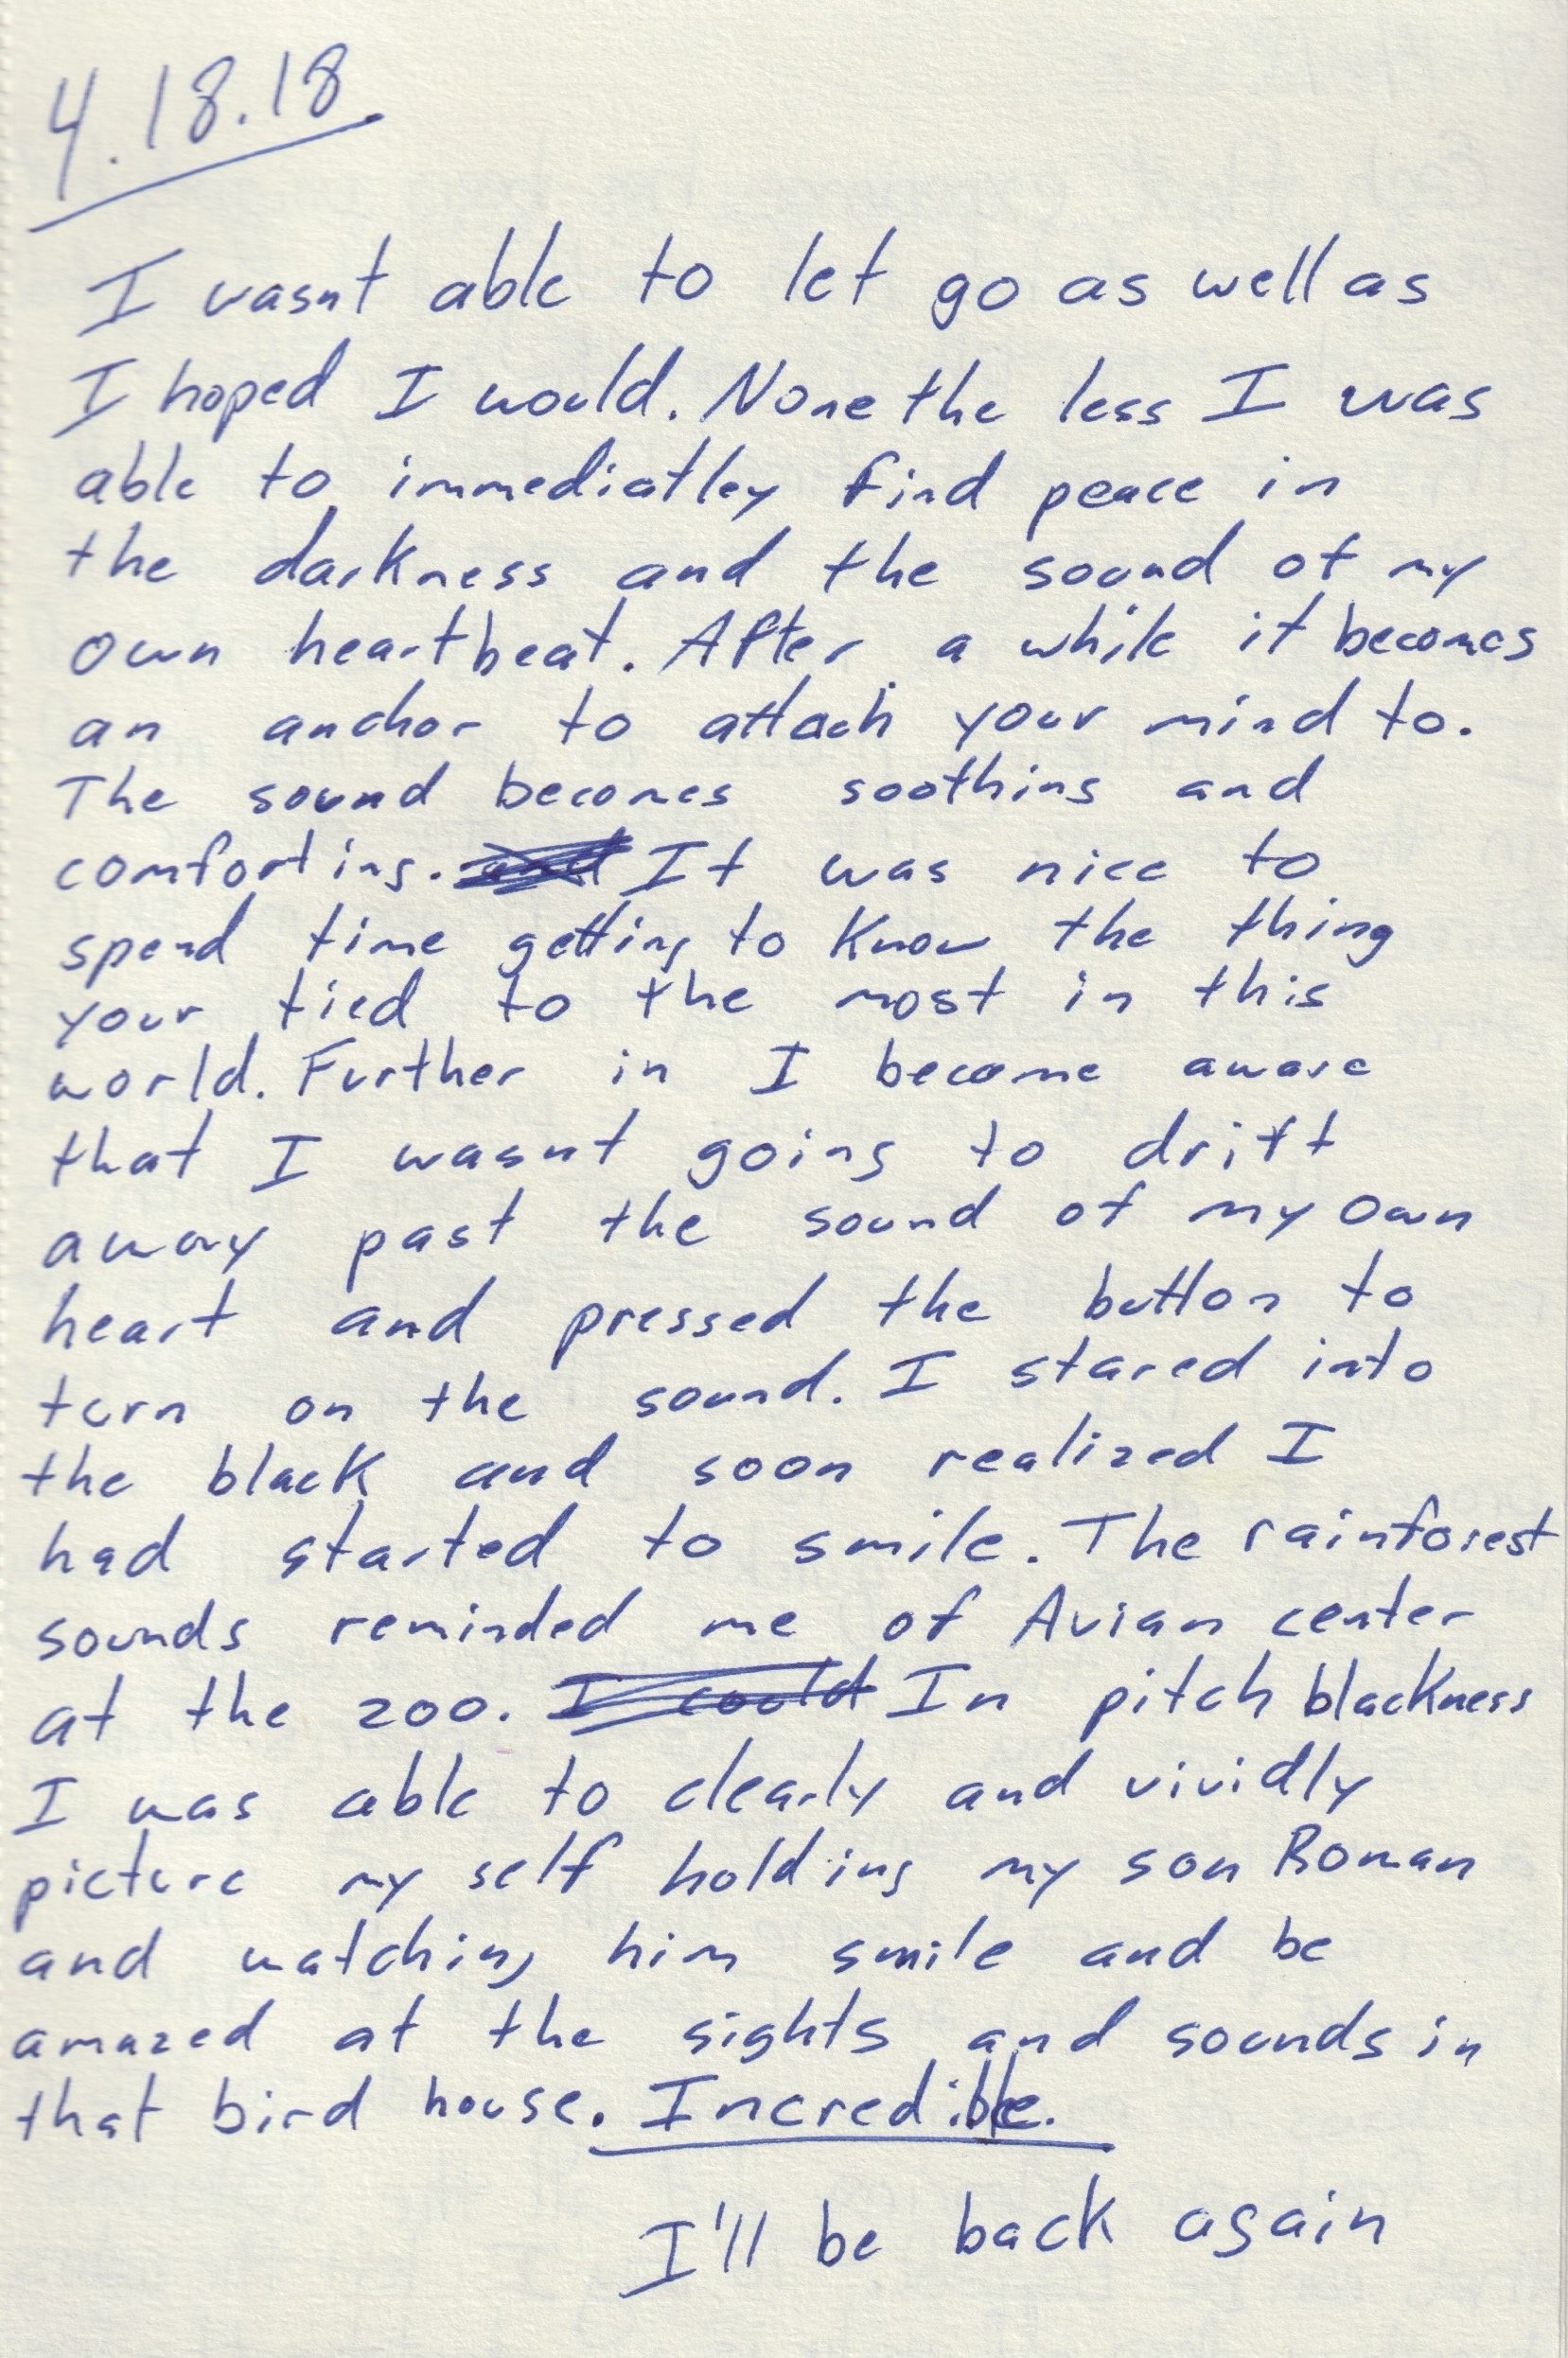 4.18.18
I wasnt able to let go as well as
I hoped I would. None the less I was
able to immediatley find peace in
the darkness and the sound of my
own heartbeat. After a while it becomes
an anchor to attach your mind to.
The sound becomes soothing and
comforting. and It was nice to
spend time getting to know the thing
your tied to the most in this
world. Further in I become aware
that I wasnt going to drift
away past the sound of my own
heart and pressed the button to
turn on the sound. I stared into
the black and soon realized I
had started to smile. The rainforest
sounds reminded me of Avian center
at the zoo. I could In pitch blackness
I was able to clearly and vividly
picture my self holding my son Roman
and watching him smile and be
amazed at the sights and sounds in
that bird house. Incredible.
I'll be back again